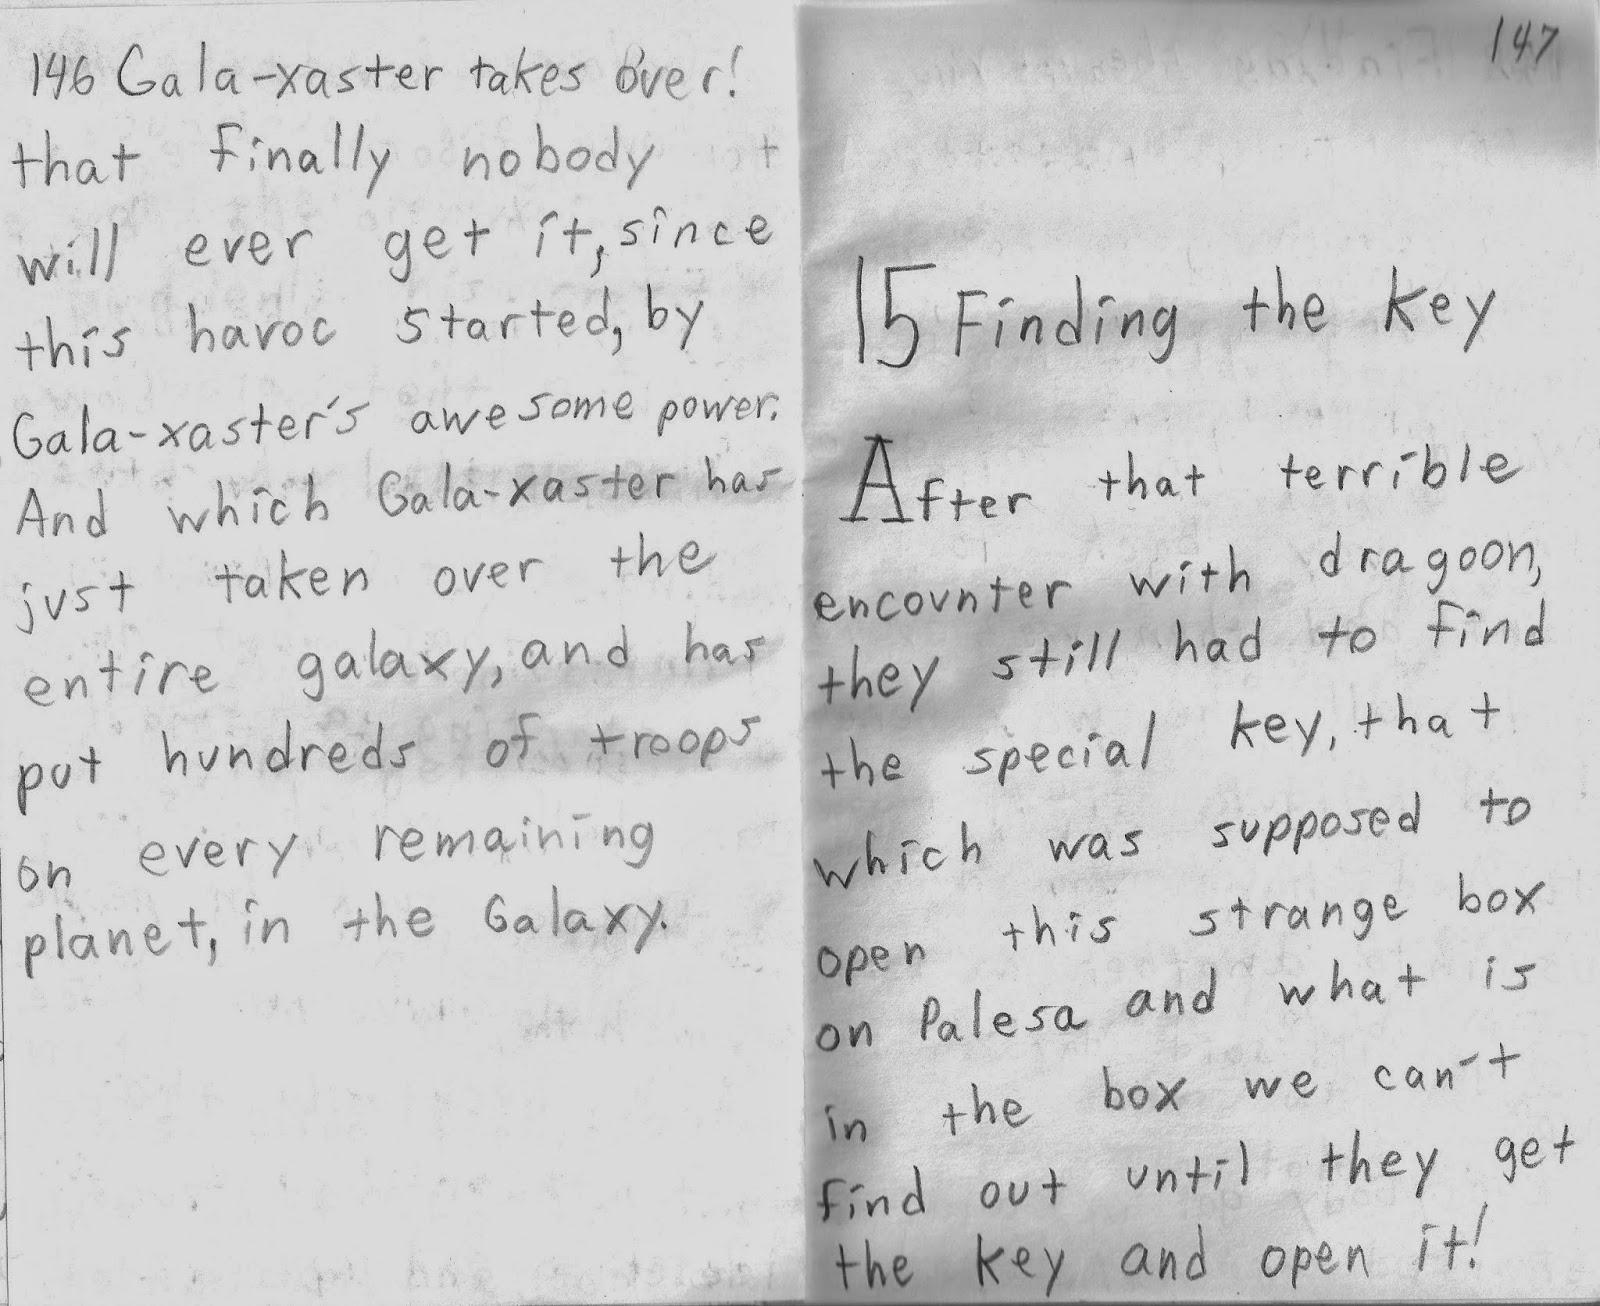 146 Gala-xaster takes over!
that finally nobody
will ever get it, since
this havoc started, by
Gala-xaster's awesome power.
And which Gala-xaster has
just taken over the
entire galaxy, and has
put hundreds of troops
on every remaining
planet, in the Galaxy.
147
15 Finding the key
After that terrible
encounter with dragoon,
they still had to find
the special key, that
which was supposed to
open this strange box
on Palesa and what is
in the box we can't
find out until they get
the key and open it!